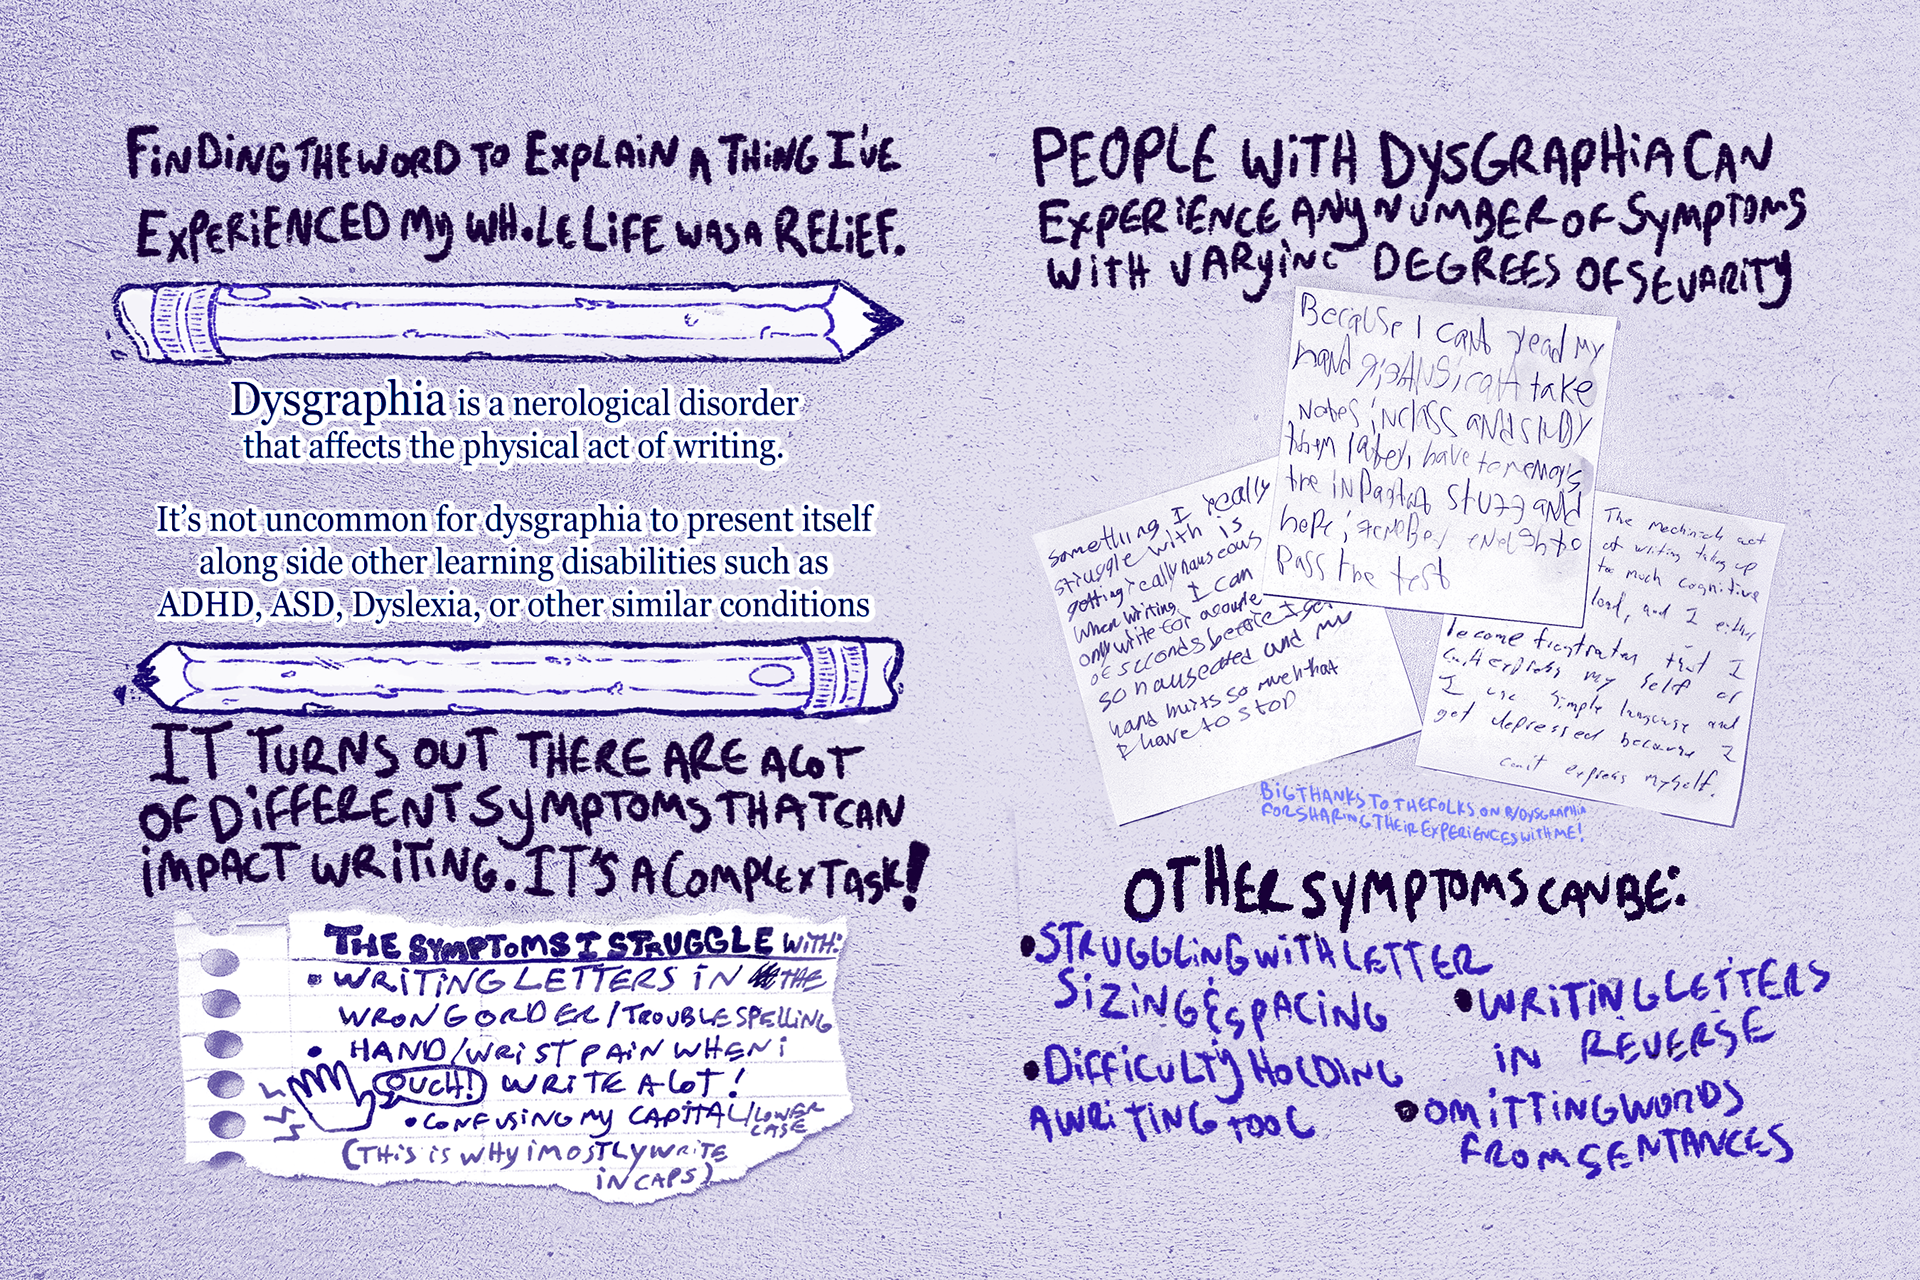 FiNDiNG THE WORD TO EXPLAiN A THiNG I'VE
EXPERiENCED My WHOLE LiFE WAS A RELiEF.
Dysgraphia is a nerological disorder
that affects the physical act of writing.
It's not uncommon for dysgraphia to present itself
along side other learning disabilities such as
ADHD, ASD, Dyslexia, or other similar conditions
IT TURNS OUT THERE ARE A LOT
OF DiFFERENT SymPTOMS THAT CAN
iMPACT WRiTiNG. IT'S A COMPLEX TASK!
THE SYMPTOMS I STRUGGLE WiTH:
• WRiTiNG LETTERS IN THE
WRONG ORDER/TROUBLE SPELLiNG
• HAND/WRIST PAIN WHEN i
OUCH! WRiTE A LOT!
• CONFUSiNG My CAPiTAL/LOWER
CASE
(THiS IS WHY i MOSTLY WRiTE
IN CAPS)
PEOPLE WiTH DySGRAPHiA CAN
EXPERiENCE ANy NUMBER OF SymPTOMS
WiTH VARyiNG DEGREES OF SEVARiTy
Because I cant read my
hand take
notes in class and study
them later, i have to
the stuff and
hope i enough to
pass the test
something I really
struggle with is
getting really nauseous
when writing. I can
only write for a couple
of seconds before I get
so nauseated and my
hand hurts so much that
I have to stop
The act
of writing takes up
too much cognitive
load, and I either
become that I
can't express my self or
I use simple language and
get depressed because I
can't express myself.
BIG THANKS TO THE FOLKS ON R/DYSGRAPHIA
FOR SHARiNG THEIR EXPERiENCES WITH ME!
OTHER SYMPTOMS CAN BE:
• STRUGGLiNG WiTH LETTER
SiZiNG & SPACiNG
• DiFFiCULTy HOLDiNG
A WRiTiNG TOOL
• WRiTiNG LETTERS
IN REVERSE
• OMiTTiNG WORDS
FROM SENTANCES